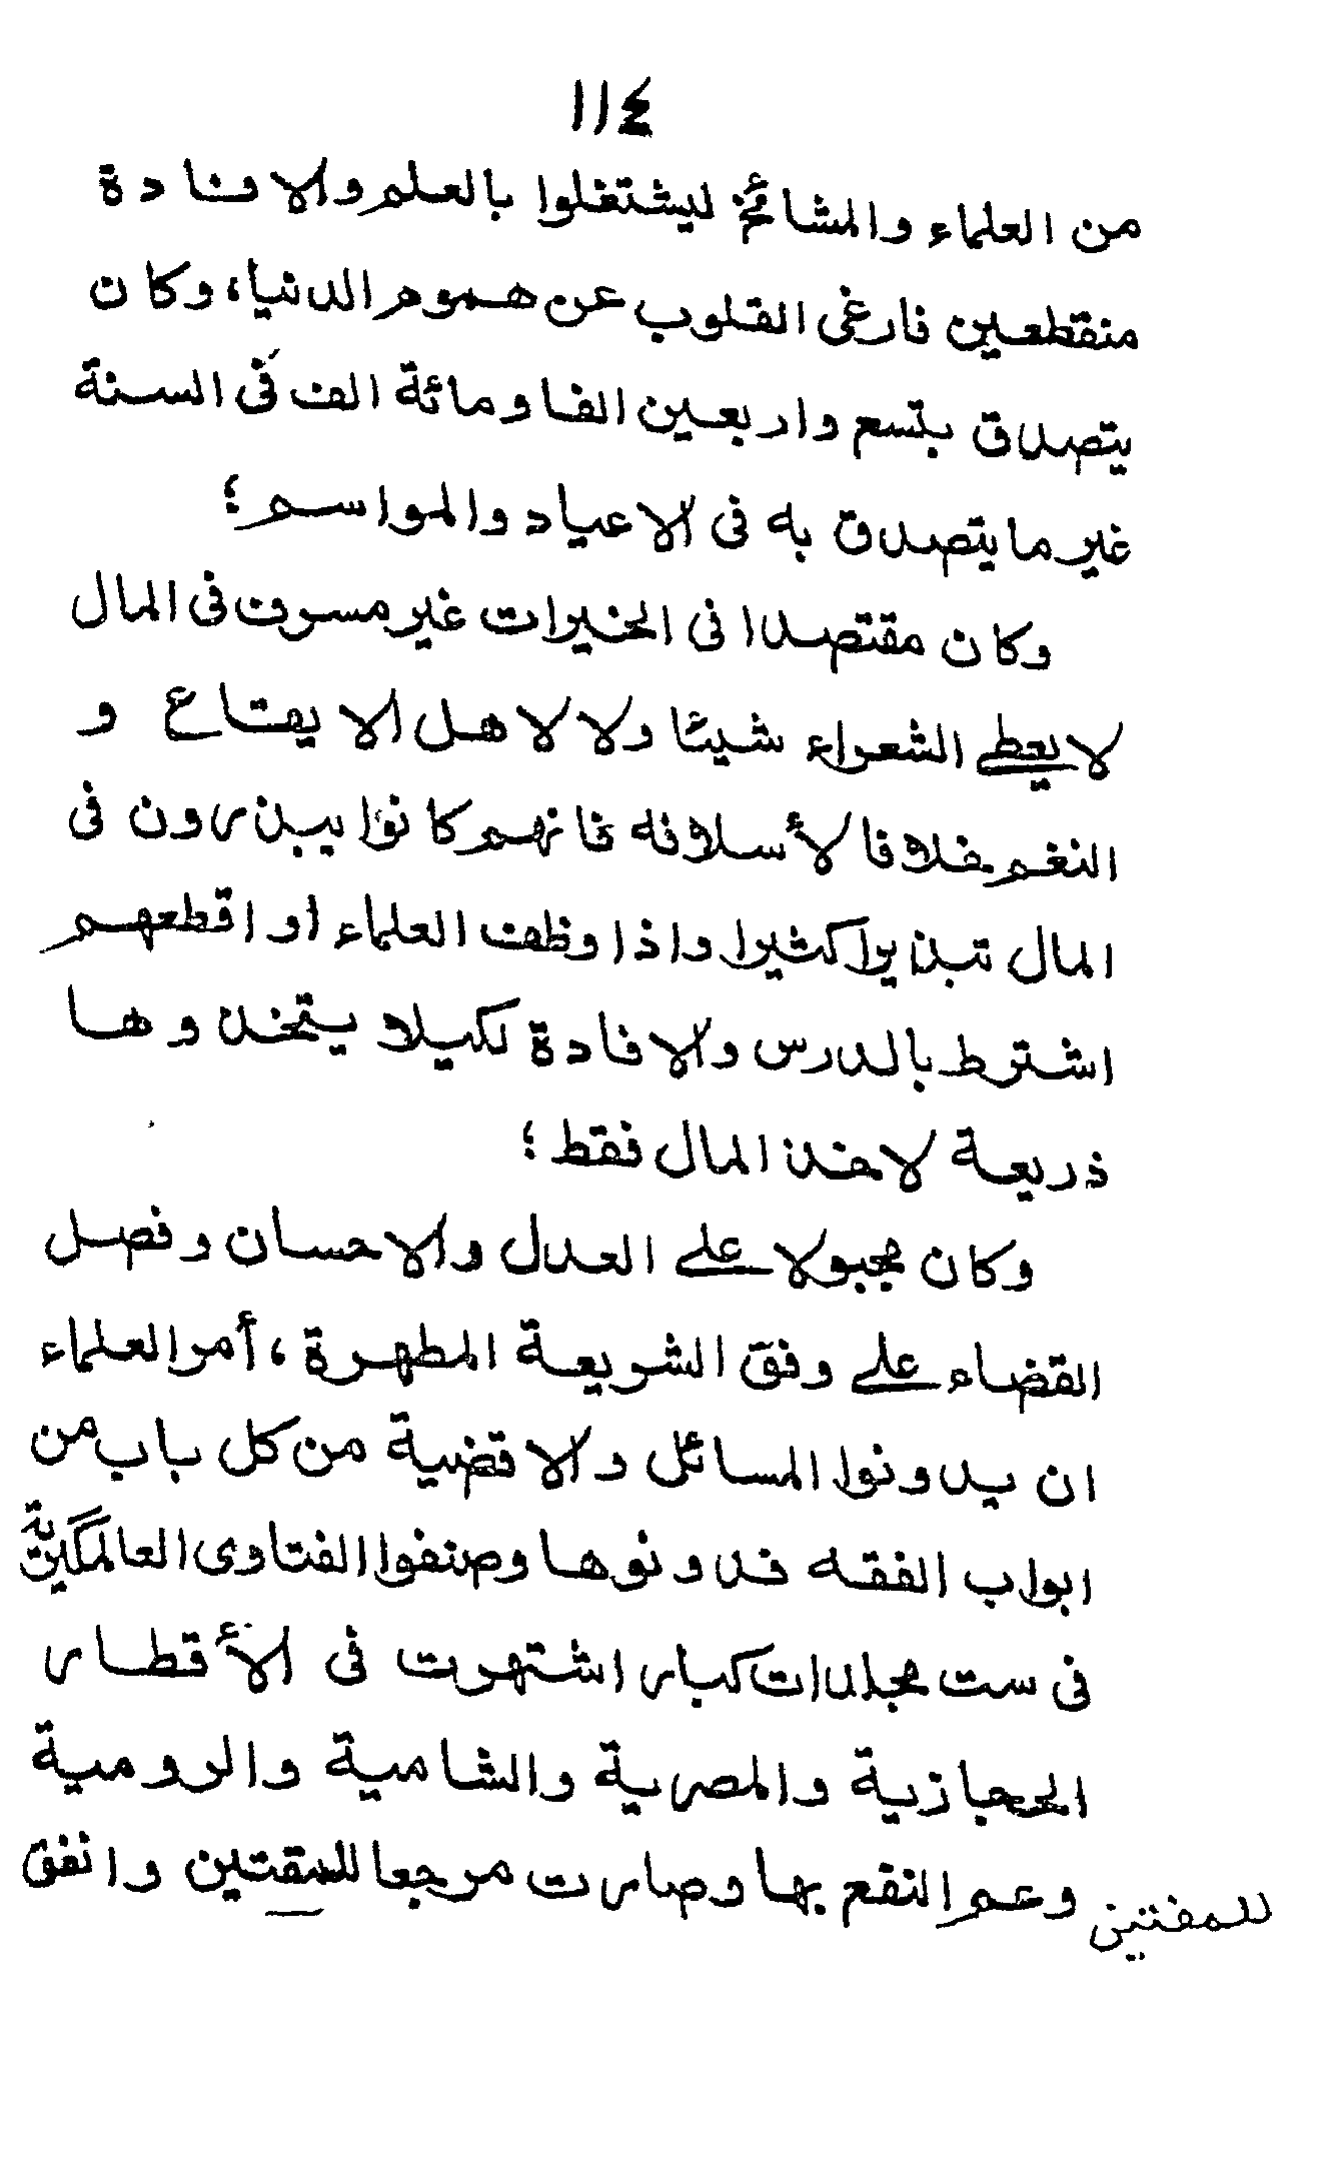 ١١٤
من العلماء والمشائخ ليشتغلوا بالعلم والافادة
منقطعين فارغى القلوب عن هموم الدنيا، وكان
يتصدق بتسع واربعين الفا ومائة الف فى السنة
غير ما يتصدق به فى الاعياد والمواسم؛
وكان مقتصدا فى الخيرات غير مسرف فى المال
لا يعطى الشعراء شيئا ولا لاهل الايقاع و
النغم خلافا لأسلافه فانهم كانوا يبذرون فى
المال تبذيرا كثيرا واذا وظف العلماء او اقطعهم
اشترط بالدرس والافادة لكيلا يتخذوها
ذريعة لاخذ المال فقط؛
وكان مجبولا على العدل والاحسان وفصل
القضاء على وفق الشريعة المطهرة، أمر العلماء
ان يدونوا المسائل والاقضية من كل باب من
ابواب الفقه فدونوها وصنفوا الفتاوى العالمگيرية
فى ست مجلدات كبار اشتهرت فى الأقطار
الحجازية والمصرية والشامية والرومية
وعم النفع بها وصارت مرجعا للمفتين وانفق
للمفتين